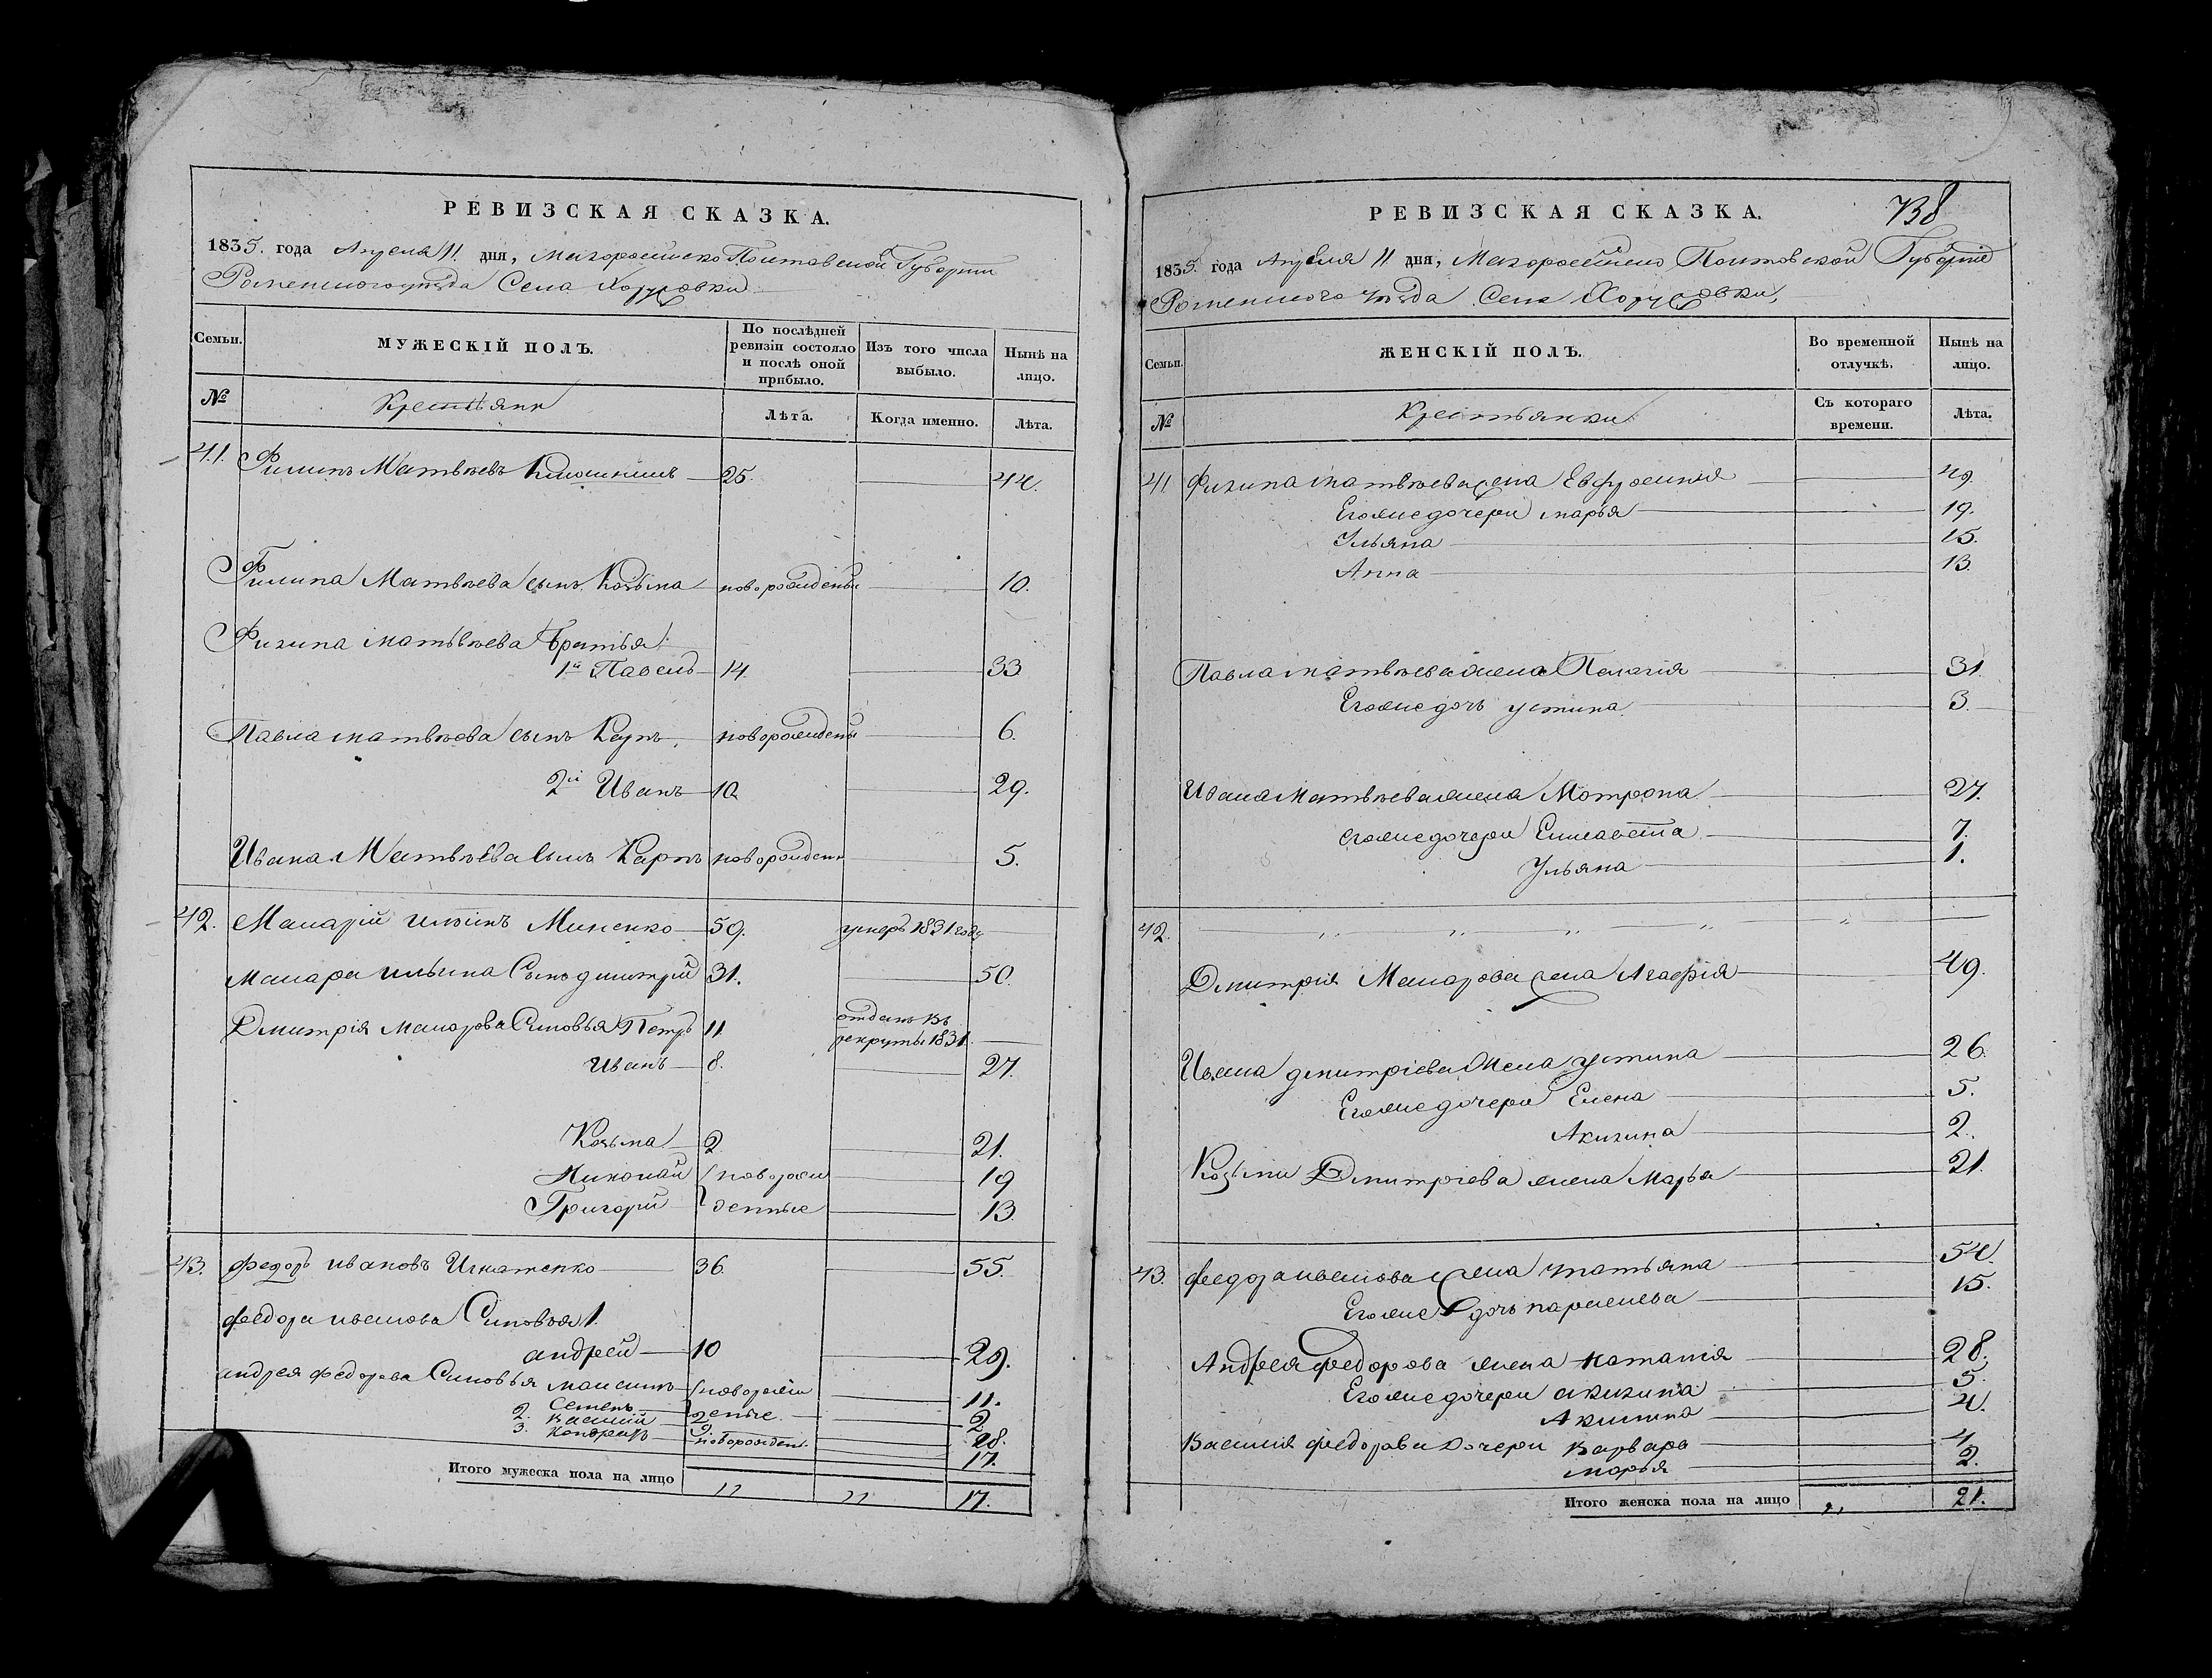 РЕВИЗСКАЯ СКАЗКА.
1835. года Апреля 11. дня, Малороссійско Полтавской Губерніи
Роменского уезда Села Хоружовки
Семьи.
МУЖЕСКІЙ ПОЛЪ.
По послѣдней ревизіи состояло и послѣ оной прибыло.
Изъ того числа выбыло.
Нынѣ на лицо.
№
Крестьяни
Лѣта.
Когда именно.
Лѣта.
41. Филипъ Матвѣевъ 25. 44.
Филипа Матвѣева сынъ Козьма новорожденый 10.
Филипа Матвѣева братья
1й Павелъ 14. 33
Павла Матвѣева сынъ Карпъ, новорожденый 6.
2й Иванъ 10. 29.
Ивана Матвѣева сынъ Карпъ новорожден 5.
42. Макарій Ильинъ Миненко 59. умеръ 1831 году
Макара Ильина Сынъ дмитрій 31. 50.
Дмитрія Макарова Синовья Петръ 11 отданъ въ рекруты 1831.
Иванъ 8. 27.
Козьма 2 21.
Николай новорож 19
Григорій денные 13.
43. Федоръ Ивановъ Игнатенко 36. 55.
Федора Иванова Синовья 1.
андрей 10 29.
андрея Федорова Синовья Максимъ новорож 11.
2. Семенъ денные 2.
Василій 9. 28.
3. Кондратъ новорожден. 17.
Итого мужеска пола на лицо " " 17.
РЕВИЗСКАЯ СКАЗКА.
738
1835. года Апреля 11 дня, Малороссійско Полтавской Губерніи
Роменского уезда Села Хоружовки,
Семьи.
ЖЕНСКІЙ ПОЛЪ.
Во временной отлучкѣ.
Нынѣ на лицо.
№
Крестьянки
Съ котораго времени.
Лѣта.
41 Филипа Матвѣева жена Евфросинія 49.
Егожие дочери Марья 19.
Ульяна 15.
Анна 13.
Павла Матвѣева жена Пелагія 31.
Егожие дочь устина 3.
Ивана Матвѣева жена Мотрона 27.
егожие дочери Елисавета 7.
Ульяна 1.
42. " " " " "
Дмитрія Макарова жена Агафія 49.
Ивана дмитріева жена устина 26.
Егожие дочери Елена 5.
Акилина 2.
Козьми Дмитріева жена Марья 21.
43. Федора Иванова жена татьяна 54.
Егожие дочь параскева 15.
Андрея Федорова жена наталія 28.
Егожие дочери акилина 5.
Акилина 4.
Василія Федорова дочери Варвара 4
марья 2.
Итого женска пола на лицо " 21.